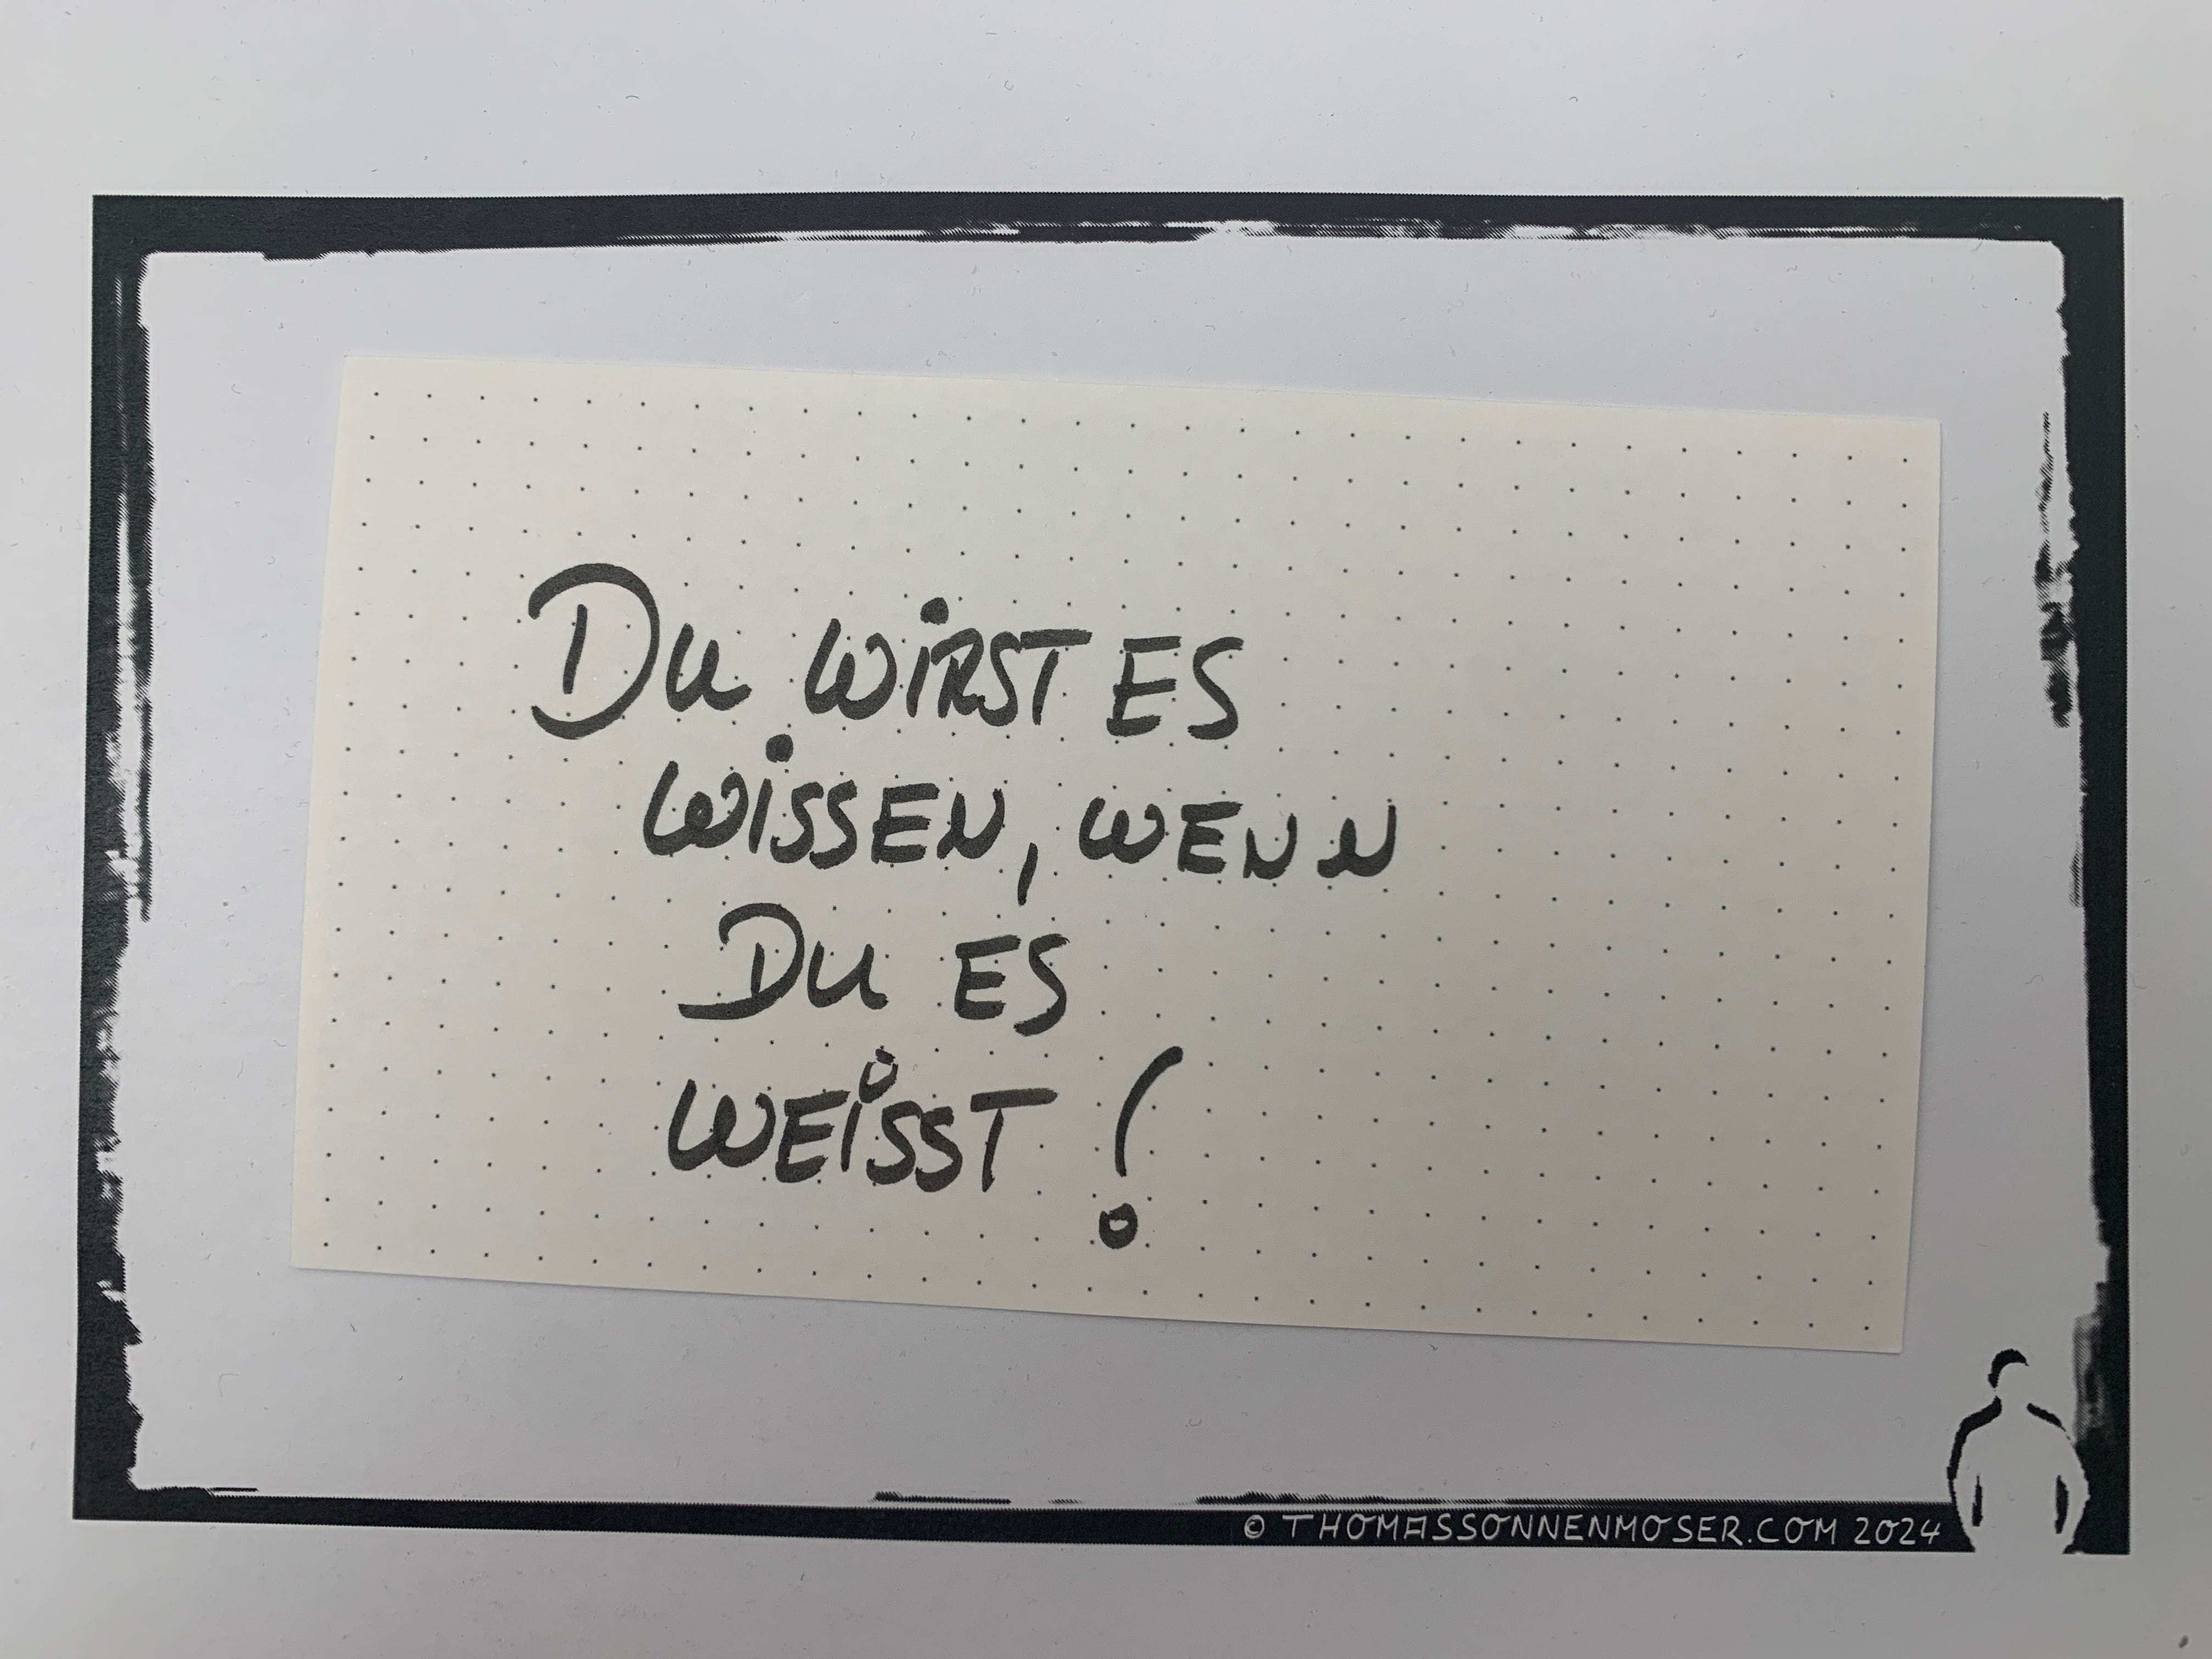 DU WIRST ES
WISSEN, WENN
DU ES
WEISST !
© THOMASSONNENMOSER.COM 2024